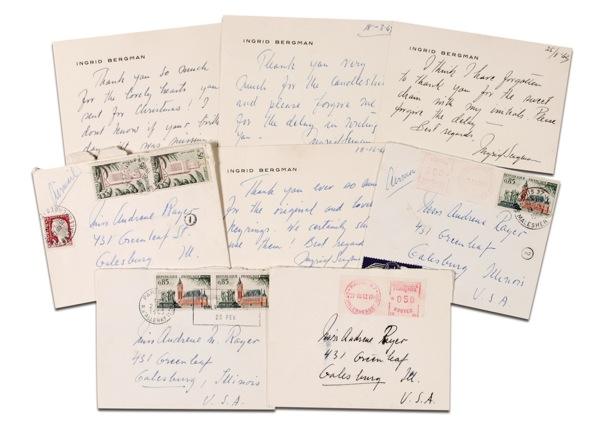 INGRID BERGMAN
Thank you so much
for the lovely hearts you
sent for Christmas! I
dont know if your birth
day was
INGRID BERGMAN
Thank you very
much for the candlesticks
and please forgive me
for the delay in writing
you.
INGRID BERGMAN
I think I have forgotten
to thank you for the sweet
chain with my initials. Please
forgive the delay.
Best regards
Ingrid Bergman
INGRID BERGMAN
Thank you ever so much
for the original and lovely
keyrings. We certainly shall
use them! Best regards
Ingrid Bergman
Miss Andrene Rayer
431 Greenleaf St.
Galesburg Ill.
U.S.A.
1
Miss Andrene Rayer
431 Greenleaf
Galesburg Illinois
U.S.A.
2
0.85
MALESHER
Miss Andrene N. Rayer
431 Greenleaf
Galesburg, Illinois
U.S.A.
0.85
0.85
PARIS
Miss Andrene Rayer
431 Greenleaf
Galesburg Ill.
U.S.A.
050
POSTES